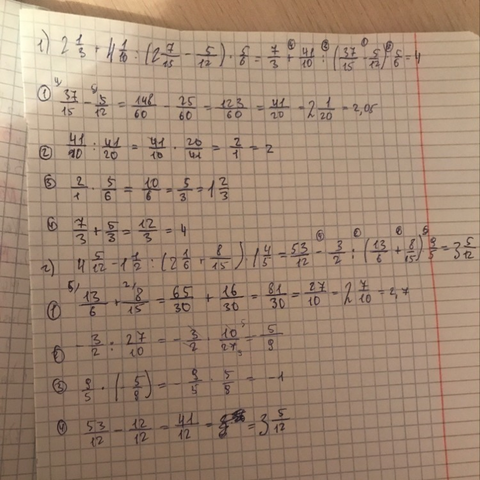 1) 2 1/3 + 4 1/10 : (2 7/15 - 5/12) · 5/6 = 7/3 + 41/10 : (37/15 - 5/12) 5/6 = 4
① 37/15 - 5/12 = 148/60 - 25/60 = 123/60 = 41/20 = 2 1/20 = 2,05
② 41/10 : 41/20 = 41/10 · 20/41 = 2/1 = 2
③ 2/1 · 5/6 = 10/6 = 5/3 = 1 2/3
④ 7/3 + 5/3 = 12/3 = 4
2) 4 5/12 - 1 1/2 : (2 1/6 + 8/15) · 1 4/5 = 53/12 - 3/2 : (13/6 + 8/15) 9/5 = 3 5/12
① 13/6 + 8/15 = 65/30 + 16/30 = 81/30 = 27/10 = 2 7/10 = 2,7
② - 3/2 : 27/10 = - 3/2 · 10/27 = 5/9
③ 9/5 · (- 5/9) = - 9/5 · 5/9 = -1
④ 53/12 - 12/12 = 41/12 = 3 5/12